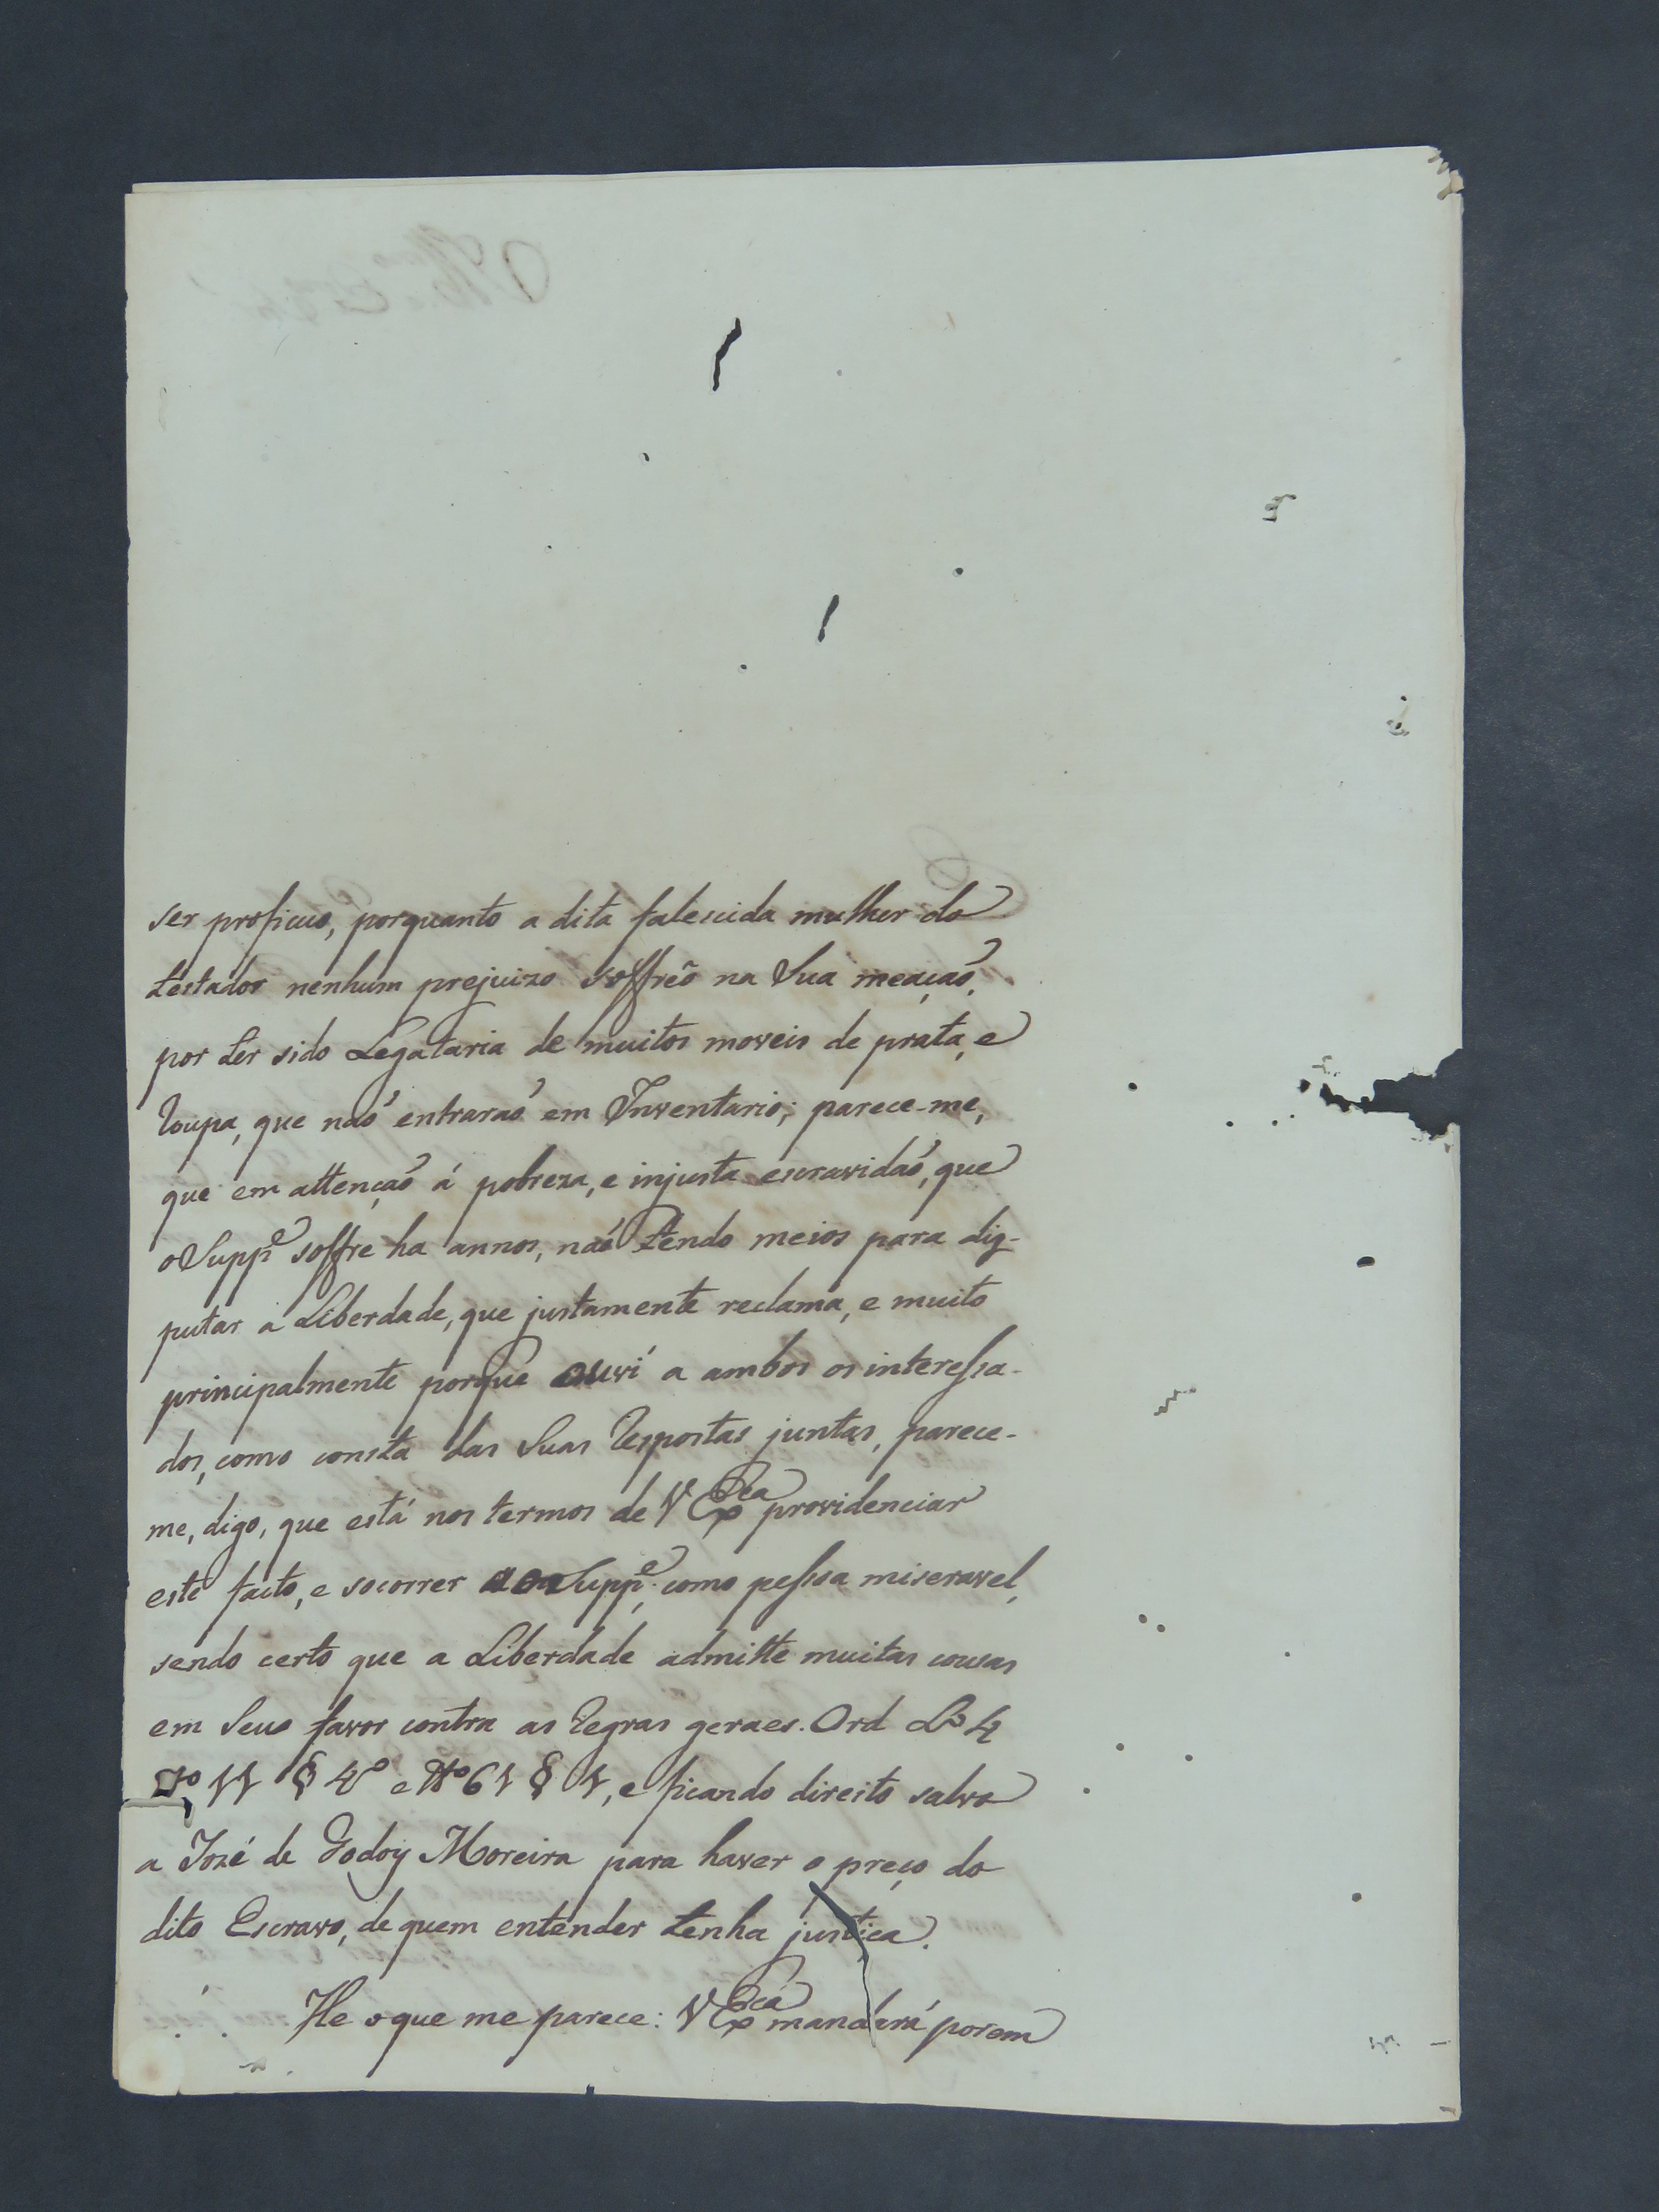 ser proficuo, porquanto a dita falescida mulher do
testador nenhum prejuizo soffrêo na Sua meaçaõ,
por ter sido Legataria de muitos moveis de prata, e
Roupa, que naõ entraraõ em Inventario; parece-me,
que em attençaõ á pobreza, e injusta escravidaõ, que
o Suppe soffre ha annos, naõ tendo meios para dis-
putar a Liberdade, que justamente reclama, e muito
principalmente porque ouvi a ambos os interessa-
dos, como consta das Suas Respostas juntas, parece-
me, digo, que está nos termos de V Exca providenciar
este facto, e socorrer ao Suppe, como pessoa miseravel,
sendo certo que a Liberdade admitte muitas cousas
em Seuo favor contra as Regras geraes. Ord Lo 4
to 11 § 4o e tto 61 § 1, e ficando direito salvo
a Jozé de Godoy Moreira para haver o preço do
dito Escravo, de quem entender tenha justiça.
He o que me parece: V Exca mandará porem